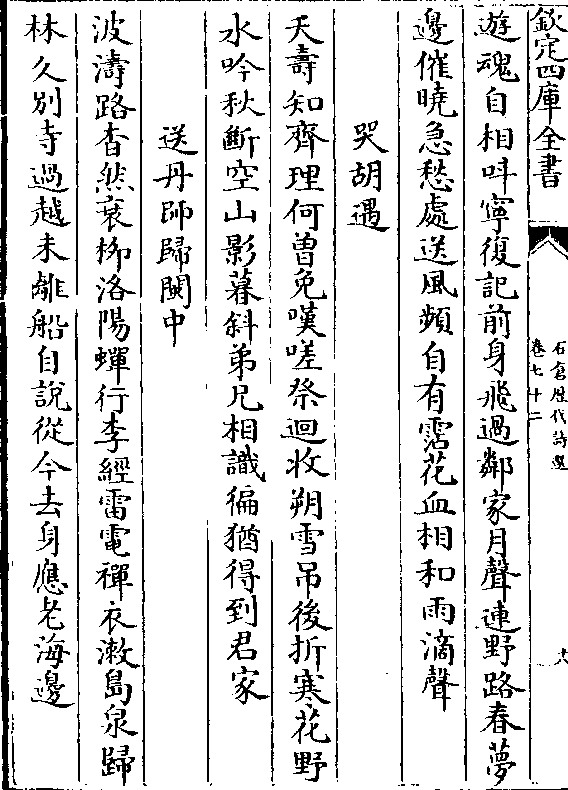 欽定四庫全書
石倉歷代詩選
卷七十二
十八
遊魂自相呌寧復記前身飛過鄰家月聲連野路春夢
邊催曉急愁處送風頻自有霑花血相和雨滴聲
哭胡遇
夭壽知齊理何曽免嘆嗟祭迴收朔雪吊後折寒花野
水吟秋斷空山影暮斜弟兄相識徧猶得到君家
送丹師歸閩中
波濤路杳然衰栁洛陽蟬行李經雷電禪衣漱島泉歸
林久別寺過越未離船自說從今去身應老海邊